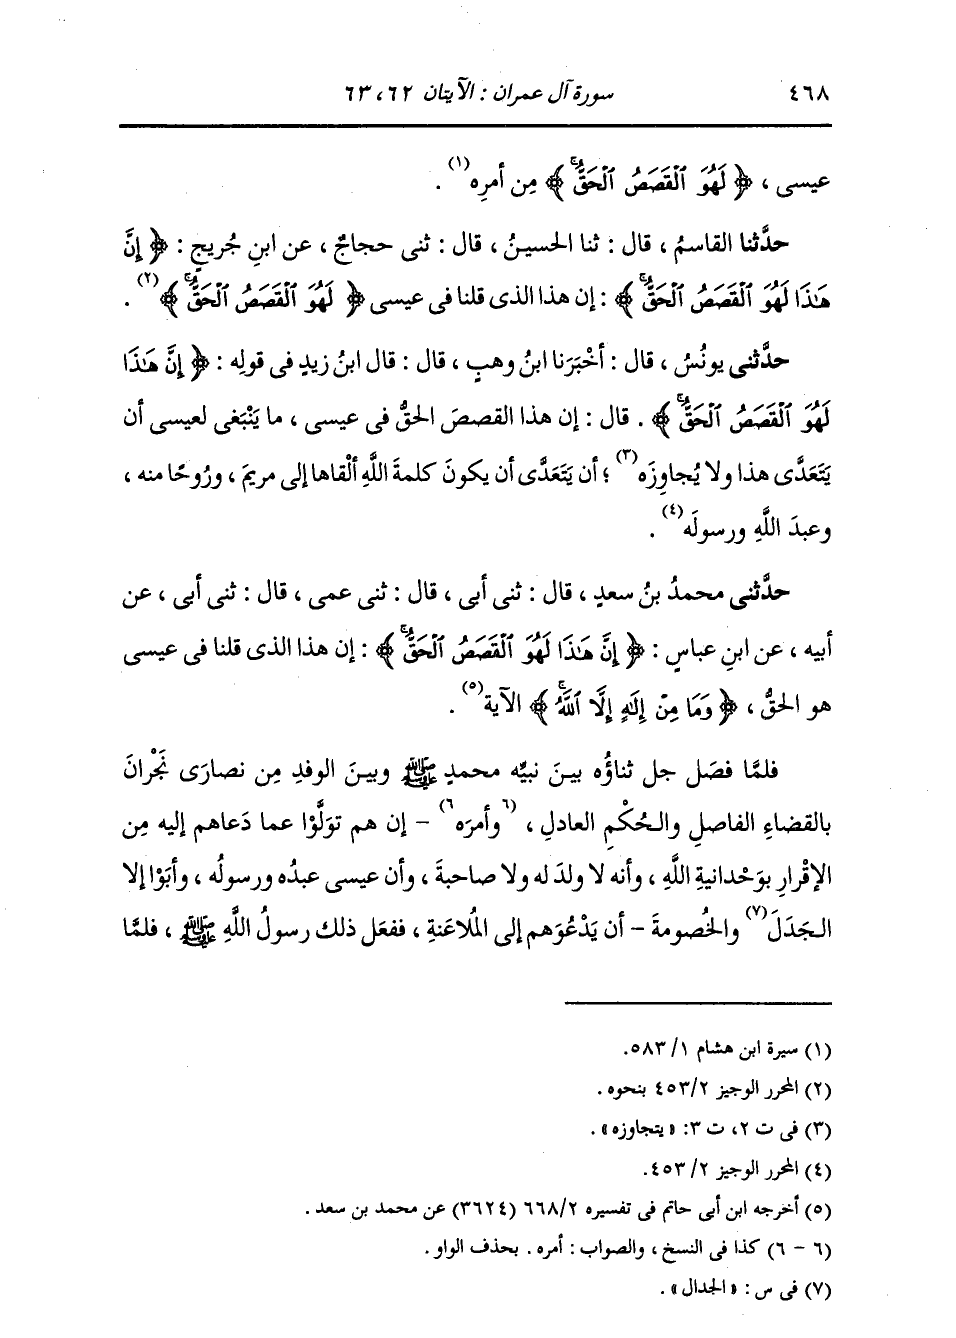 ٤٦٨ سورة آل عمران : الآيتان ٦٢، ٦٣
عيسى ، ﴿ لَهُوَ ٱلْقَصَصُ ٱلْحَقُّۚ ﴾ مِن أمرِه(١) .
حدَّثنا القاسمُ ، قال : ثنا الحسينُ ، قال : ثنى حجاجٌ ، عن ابنِ جُريجٍ : ﴿ إِنَّ
هَٰذَا لَهُوَ ٱلْقَصَصُ ٱلْحَقُّۚ ﴾ : إن هذا الذى قلنا فى عيسى ﴿ لَهُوَ ٱلْقَصَصُ ٱلْحَقُّۚ ﴾(٢) .
حدَّثنى يونُسُ ، قال : أخْبَرَنا ابنُ وهبٍ ، قال : قال ابنُ زيدٍ فى قولِه : ﴿ إِنَّ هَٰذَا
لَهُوَ ٱلْقَصَصُ ٱلْحَقُّۚ ﴾ . قال : إن هذا القصصَ الحقُّ فى عيسى ، ما يَنْبَغى لعيسى أن
يَتَعَدَّى هذا ولا يُجاوِزَه(٣) ؛ أن يَتَعَدَّى أن يكونَ كلمةَ اللَّهِ ألْقاها إلى مريمَ ، ورُوحًا منه ،
وعبدَ اللَّهِ ورسولَه(٤) .
حدَّثنى محمدُ بنُ سعدٍ ، قال : ثنى أبى ، قال : ثنى عمى ، قال : ثنى أبى ، عن
أبيه ، عن ابنِ عباسٍ : ﴿ إِنَّ هَٰذَا لَهُوَ ٱلْقَصَصُ ٱلْحَقُّۚ ﴾ : إن هذا الذى قلنا فى عيسى
هو الحقُّ ، ﴿ وَمَا مِنْ إِلَٰهٍ إِلَّا ٱللَّهُۚ ﴾ الآية(٥) .
فلمَّا فصَل جل ثناؤُه بينَ نبيِّه محمدٍ ﷺ وبينَ الوفدِ مِن نصارَى نَجْرانَ
بالقضاءِ الفاصلِ والحُكْمِ العادلِ ، (٦ وأمرَه ٦) – إن هم تولَّوْا عما دَعاهم إليه مِن
الإقْرارِ بوَحْدانيةِ اللَّهِ ، وأنه لا ولدَ له ولا صاحبةَ ، وأن عيسى عبدُه ورسولُه ، وأبَوْا إلا
الجَدَلَ(٧) والخُصومةَ – أن يَدْعُوَهم إلى المُلاعَنةِ ، ففعَل ذلك رسولُ اللَّهِ ﷺ ، فلمَّا
(١) سيرة ابن هشام ١/ ٥٨٣.
(٢) المحرر الوجيز ٢/ ٤٥٣ بنحوه .
(٣) فى ت ٢، ت ٣: « يتجاوزه » .
(٤) المحرر الوجيز ٢/ ٤٥٣.
(٥) أخرجه ابن أبى حاتم فى تفسيره ٢/ ٦٦٨ (٣٦٢٤) عن محمد بن سعد .
(٦ – ٦) كذا فى النسخ ، والصواب : أمره . بحذف الواو .
(٧) فى س : « الجدال » .